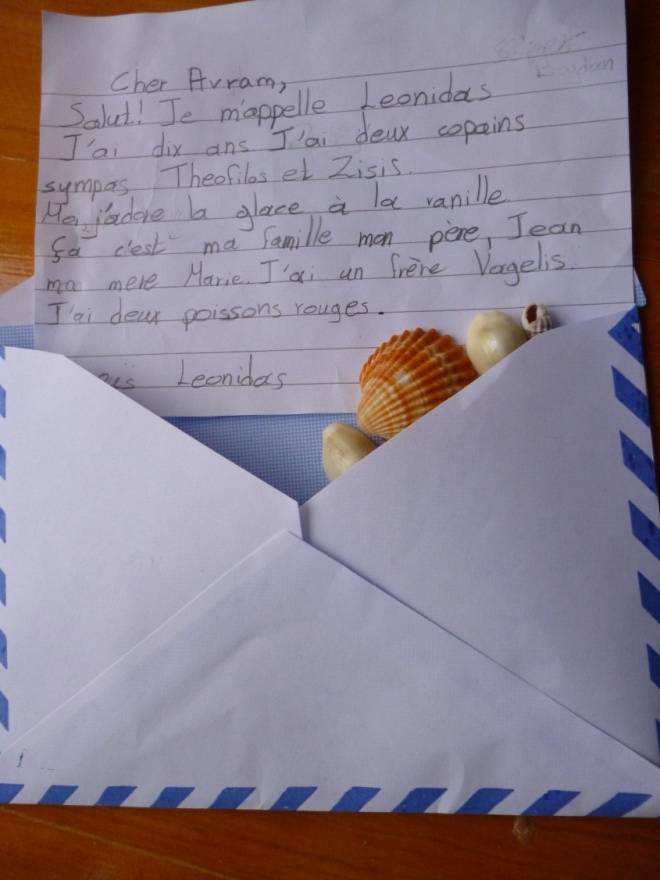 Cher Avram,
Salut! Je m'appelle Leonidas
J'ai dix ans. J'ai deux copains
sympas Theofilos et Zisis.
j'adore la glace à la vanille
Ça c'est ma famille mon père, Jean
ma mere Marie. J'ai un frère Vagelis.
J'ai deux poissons rouges.
Leonidas